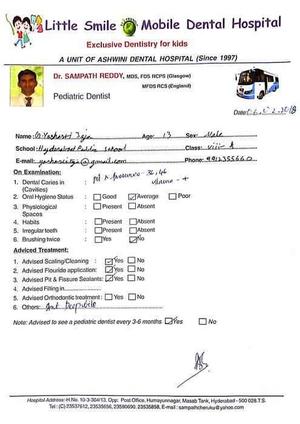 Little Smile Mobile Dental Hospital
Exclusive Dentistry for kids
A UNIT OF ASHWINI DENTAL HOSPITAL (Since 1997)
Dr. SAMPATH REDDY, MDS, FDS RCPS (Glasgow)
MFDS RCS (England)
Pediatric Dentist
Date:
Name: Age: 13 Sex: Male
School: Hyderabad Public School Class: VIII A
E-mail: Phone: 9912355660
On Examination:
1. Dental Caries in : - 36, 46
(Cavities)
2. Oral Hygiene Status : Good Average Poor
3. Physiological : Present Absent
Spaces
4. Habits : Present Absent
5. Irregular teeth : Present Absent
6. Brushing twice : Yes No
Adviced Treatment:
1. Advised Scaling/Cleaning : Yes No
2. Advised Flouride application: Yes No
3. Advised Pit & Fissure Sealants: Yes No
4. Advised Filling in
5. Advised Orthodontic treatment : Yes No
6. Others:
Note: Advised to see a pediatric dentist every 3-6 months Yes No
Hospital Address: H.No. 10-3-304/13, Opp. Post Office, Humayunnagar, Masab Tank, Hyderabad - 500 028.T.S.
Tel: (C) 23537612, 23535656, 23590690, 23535858, E-mail : sampathcheruku@yahoo.com